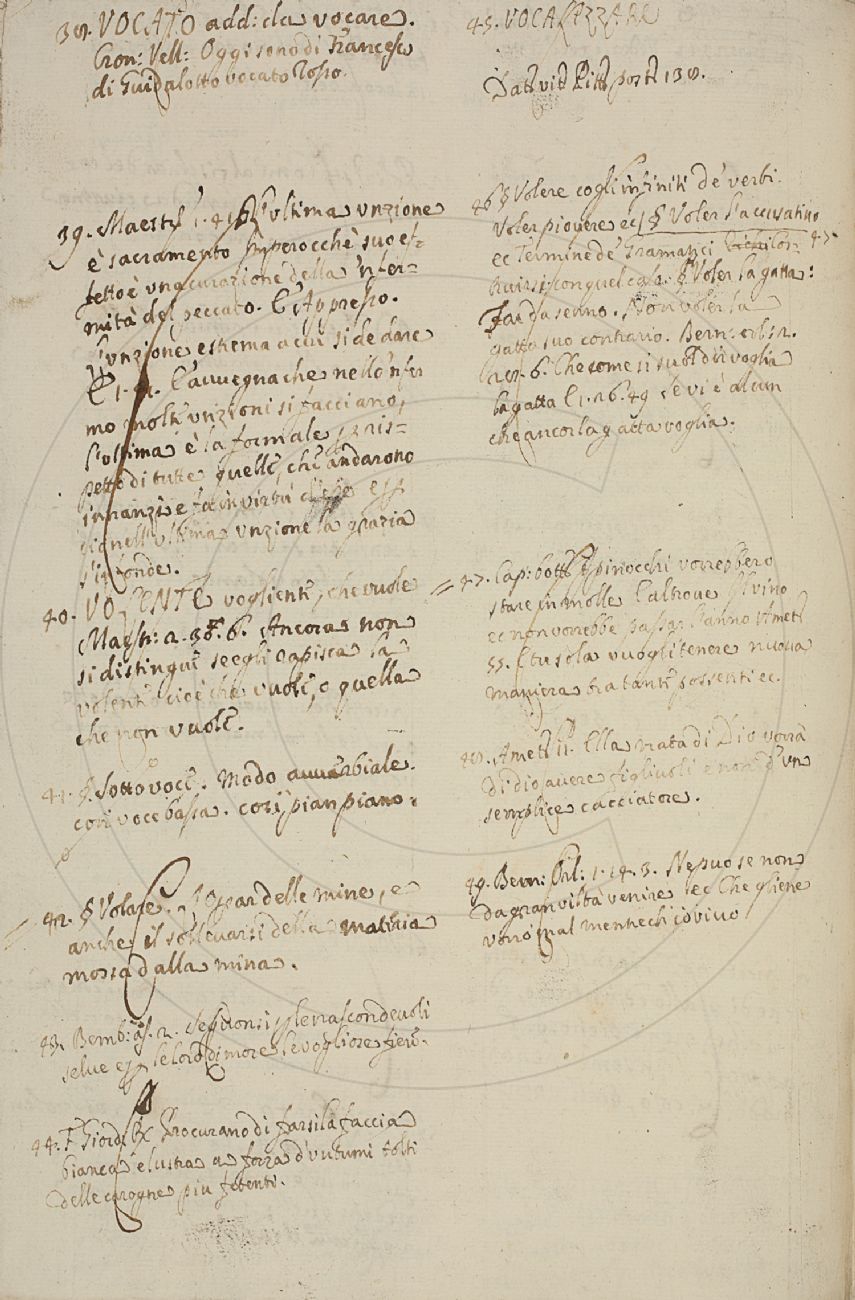 38. VOCATO add: da vocare.
Cron: Vell: Oggi sono di Francesco
di Guidalotto vocato Rosso.
39. Maestr. L'ultima unzione
è sacramento. Imperocchè suo ef-
fetto è una curazione della 'nfer-
mità del peccato. E Appresso.
L'unzione estrema a cui si de dare
E l'avvegnache nello 'nfer
mo molte unzioni si facciano,
l'ultima è la formale, p ris-
petto di tutte quelle, che andarono
innanzi e in virtù esse
nell'ultima unzione la grazia
s'infonde.
40. VOLENTE voglienti, che vuole
Maestr: a. 38. 6. Ancora non
si distingue se egli capisca la
volente cioè che vuole, o quella
che non vuole.
41. § Sotto voce. Modo avverbiale.
con voce bassa. così pian piano.
42. § Volare. Iogar delle mine, e
anche il sollevarsi della materia
mossa dalla mina.
43. Bemb: as. 2. le nascondevoli
selve le lor dimore le vogliose fiere.
44. F. Giord: Procurano di farsi la faccia
bianca e lustra a forza d'untumi tolti
delle carogne piu fetenti.
45. VOCALIZZARE
Dat: vit: Pitt: post: 138.
46 § Volere cogli infiniti de' verbi.
Voler piovere ec. § Voler l'accusativo
ec Termine de' Gramatici 47
§ Voler la gatta:
Far da senno. Non voler la
gatta suo contrario. Bern: orl: 1. 2.
6. Che come si suol dir voglia
la gatta E 1. 26. 49 Se vi è alcun
che ancor la gatta voglia.
47. Cap: bott: Spinocchi vorrebbero
stare in molle E altrove Il vino
ec non vorrebbe passar l'anno Amet:
55. E tu sola vuogli tenere nuova
maniera tra tanti possenti ec.
48. Amet: 11. Ella nata di Dio vorrà
di dio avere figliuoli e non d'un
semplice cacciatore.
49. Bern: Orl: 1. 14. 3. Ne puo se non
da gran viltà venire ec Che gliene
vono mal mentre ch'io vivo